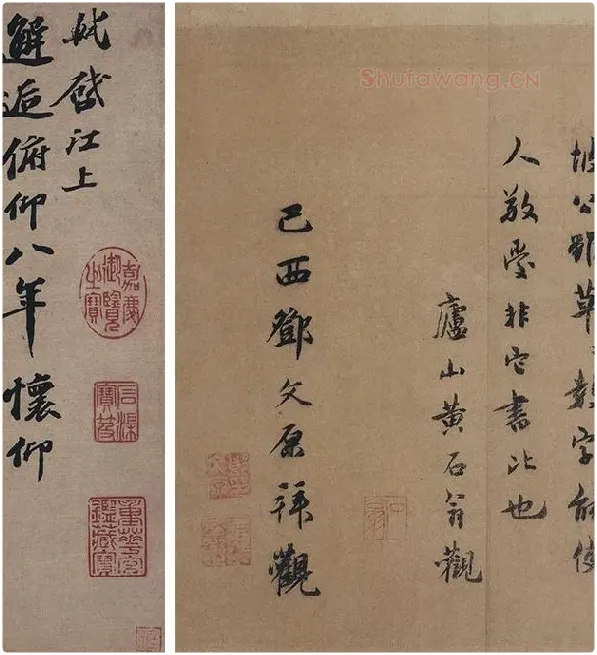 軾啓江上
邂逅俯仰八年懷仰
嘉慶御覽之寶
石渠寶笈
重華宮鑑藏寶
Shufawang.CN
坡公雖草〻數字能使
人敬愛非它書比也
廬山黃石翁觀
己酉鄧文原拜觀